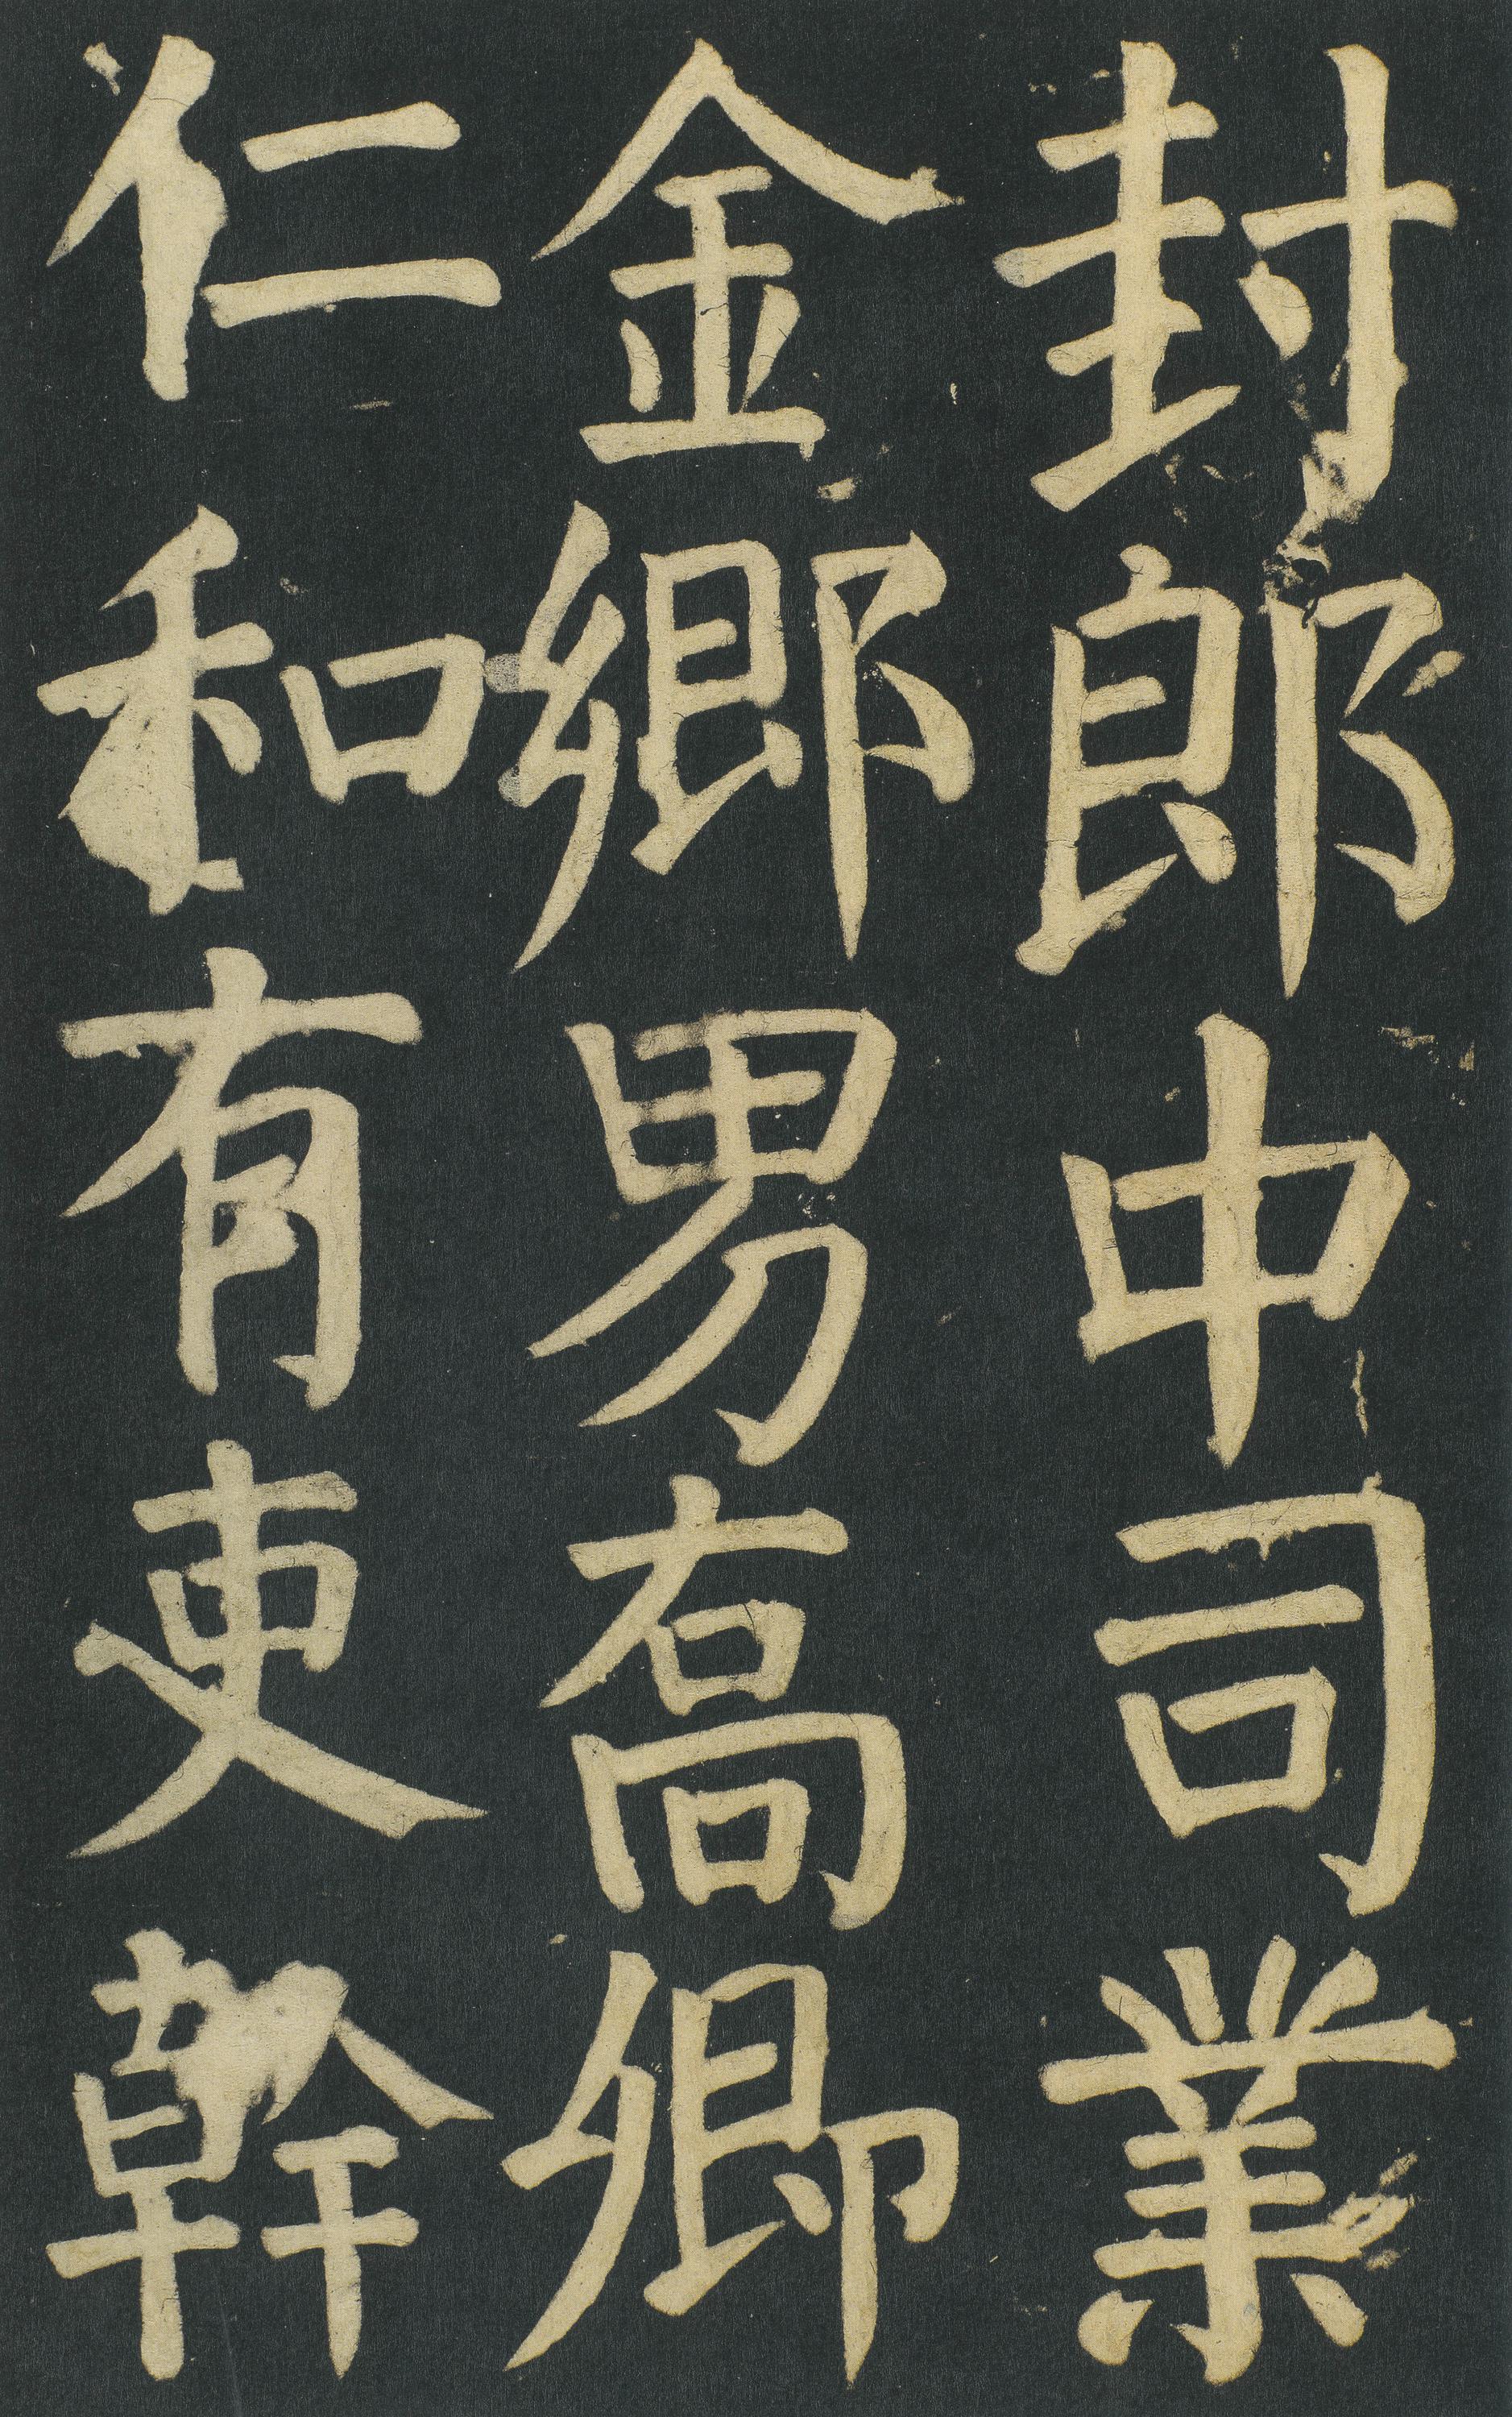 封郎中司業
金鄉男喬卿
仁和有吏幹